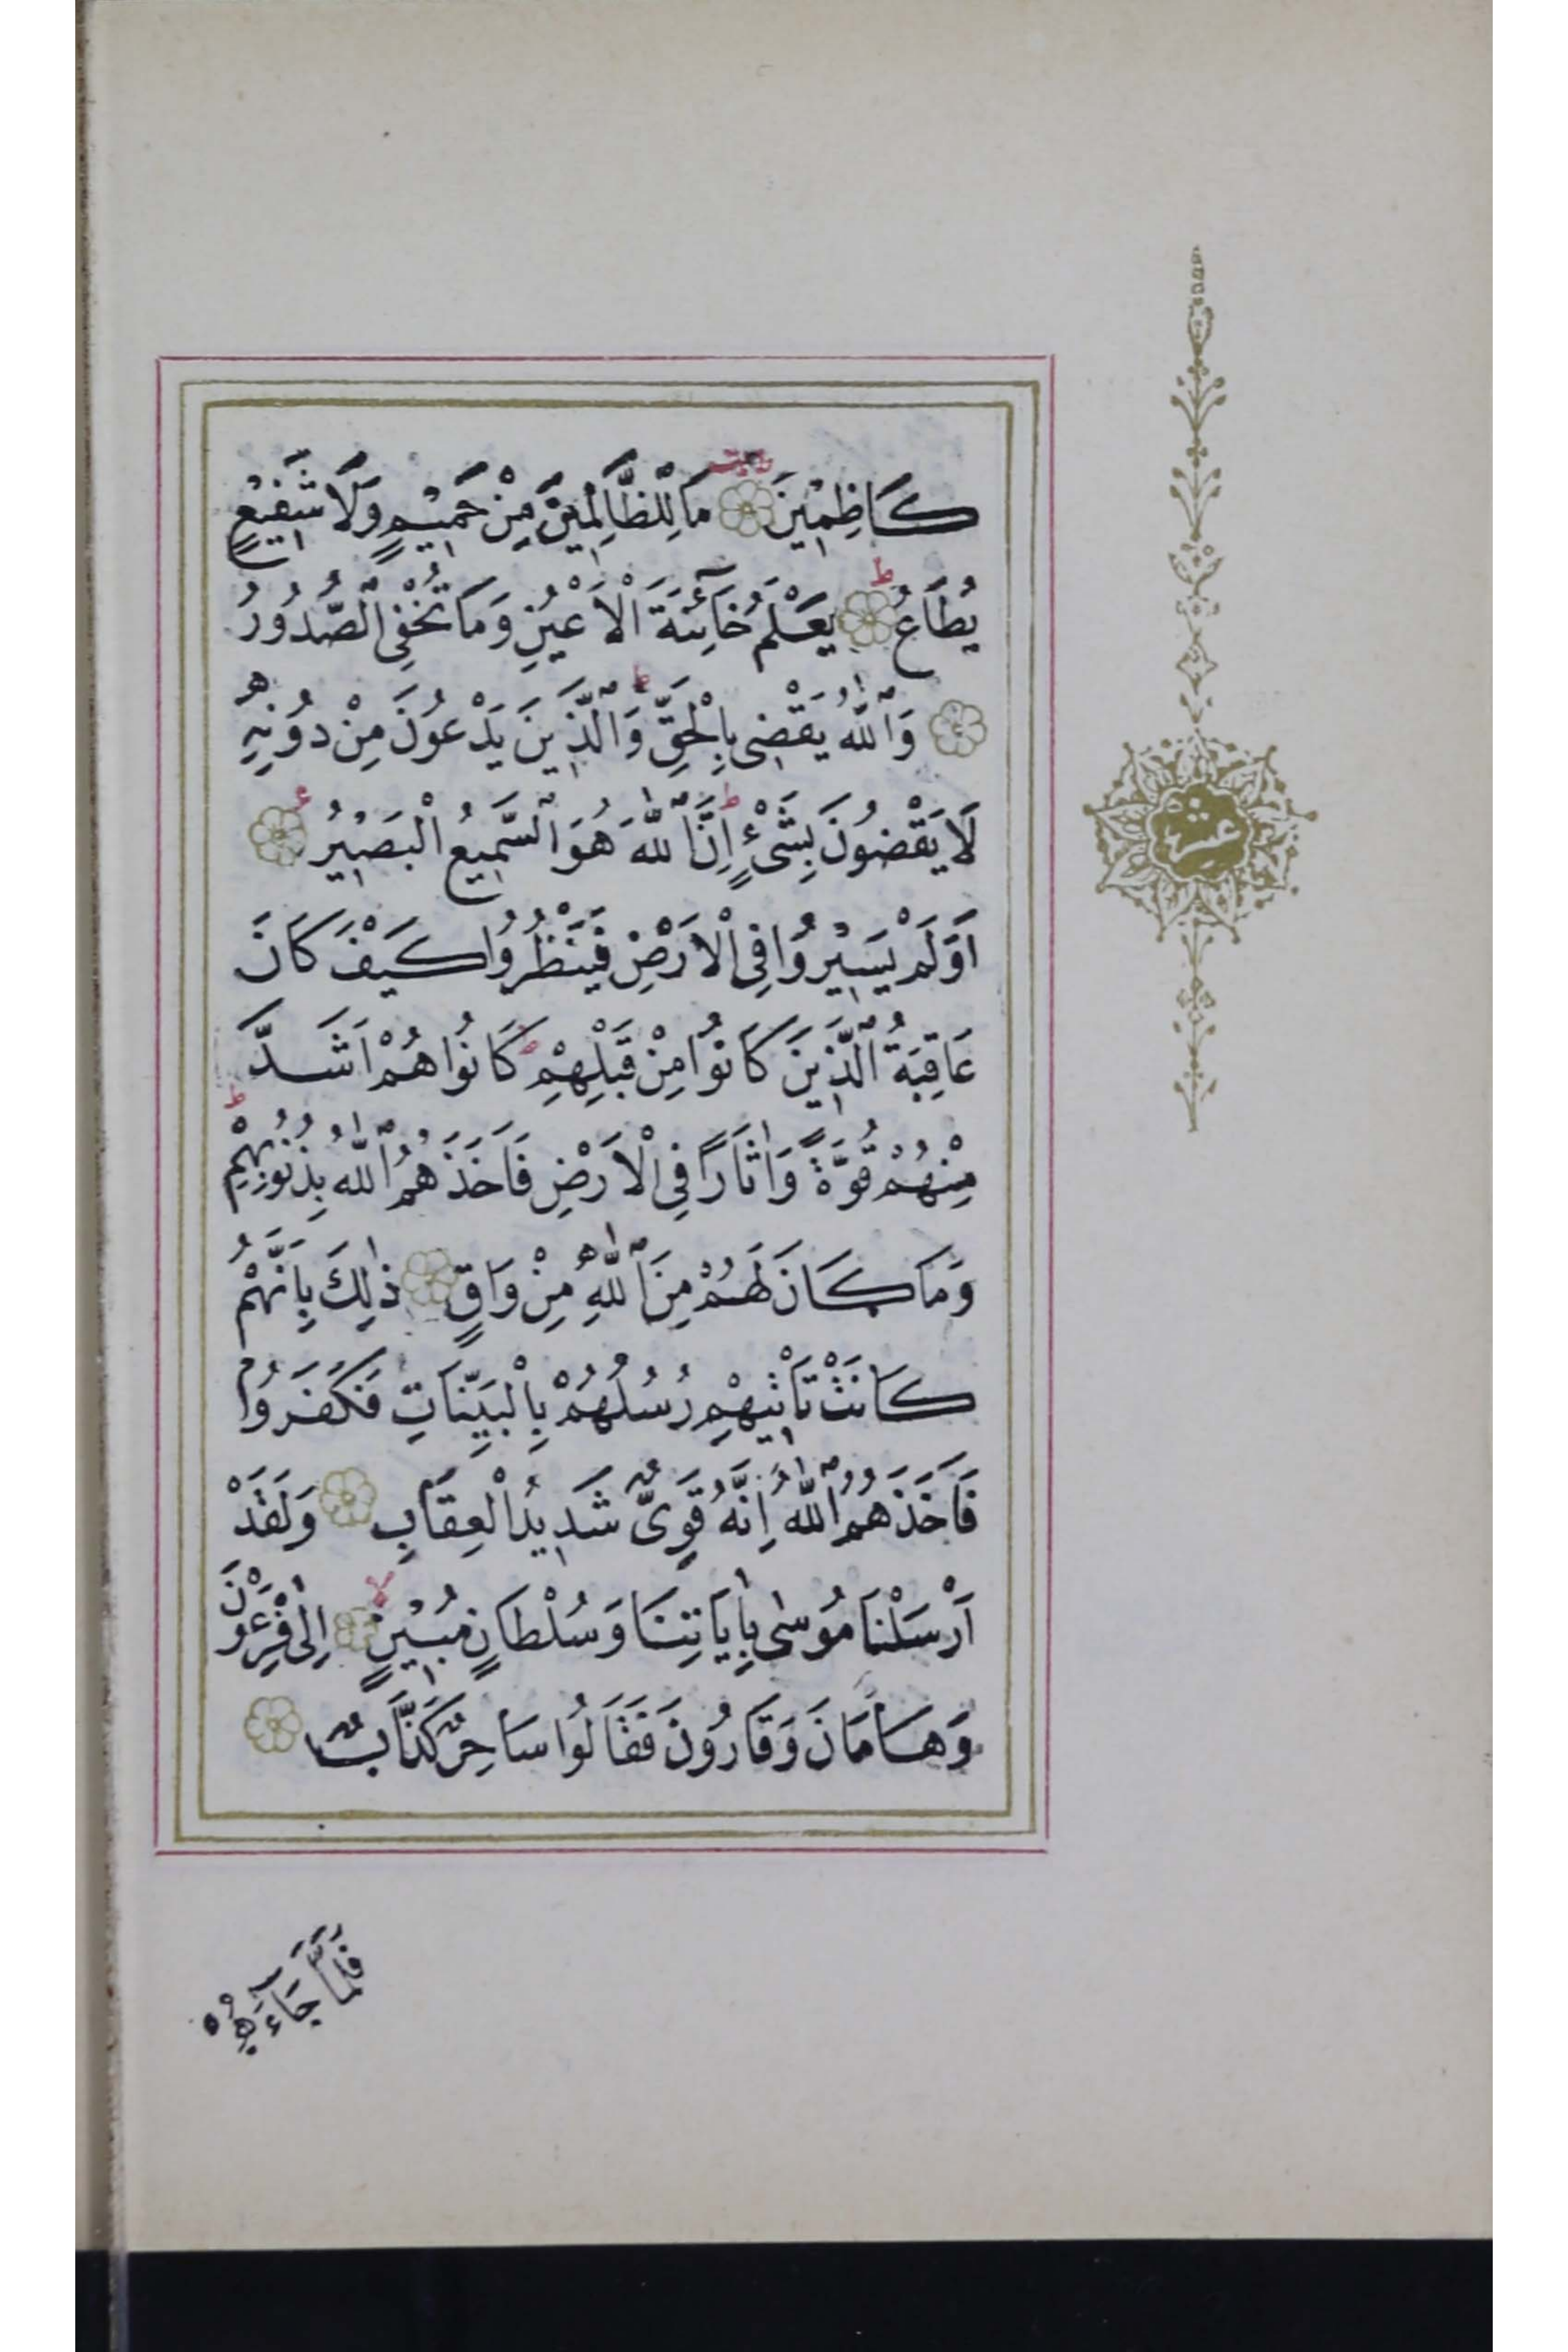 كَاظِمِينَ ۝ مَا لِلظَّالِمِينَ مِنْ حَمِيمٍ وَلَا شَفِيعٍ
يُطَاعُ ۝ يَعْلَمُ خَآئِنَةَ الْاَعْيُنِ وَمَا تُخْفِى الصُّدُورُ
۝ وَاللّٰهُ يَقْضِى بِالْحَقِّ وَالَّذِينَ يَدْعُونَ مِنْ دُونِهِ
لَا يَقْضُونَ بِشَىْءٍ اِنَّ اللّٰهَ هُوَ السَّمِيعُ الْبَصِيرُ ۝
اَوَلَمْ يَسِيرُوا فِى الْاَرْضِ فَيَنْظُرُوا كَيْفَ كَانَ
عَاقِبَةُ الَّذِينَ كَانُوا مِنْ قَبْلِهِمْ كَانُوا هُمْ اَشَدَّ
مِنْهُمْ قُوَّةً وَاٰثَارًا فِى الْاَرْضِ فَاَخَذَهُمُ اللّٰهُ بِذُنُوبِهِمْ
وَمَا كَانَ لَهُمْ مِنَ اللّٰهِ مِنْ وَاقٍ ۝ ذٰلِكَ بِاَنَّهُمْ
كَانَتْ تَاْتِيهِمْ رُسُلُهُمْ بِالْبَيِّنَاتِ فَكَفَرُوا
فَاَخَذَهُمُ اللّٰهُ اِنَّهُ قَوِىٌّ شَدِيدُ الْعِقَابِ ۝ وَلَقَدْ
اَرْسَلْنَا مُوسٰى بِاٰيَاتِنَا وَسُلْطَانٍ مُبِينٍ ۝ اِلٰى فِرْعَوْنَ
وَهَامَانَ وَقَارُونَ فَقَالُوا سَاحِرٌ كَذَّابٌ ۝
فَلَمَّا جَآءَهُمْ